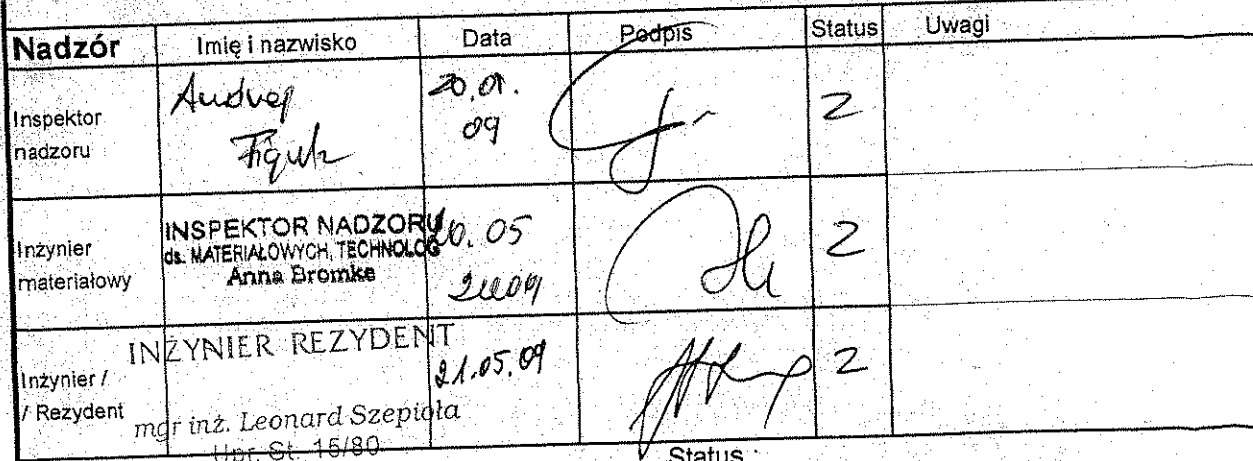 Nadzór Imię i nazwisko Data Podpis Status Uwagi
Inspektor nadzoru Andrzej 20.01. 09 2
Inżynier materiałowy INSPEKTOR NADZORU 20.05 2009 2
ds. MATERIAŁOWYCH, TECHNOLOG
Anna Bromke
Inżynier / / Rezydent INŻYNIER REZYDENT 21.05.09 2
mgr inż. Leonard Szepioła
Upr. St. 15/80
Status